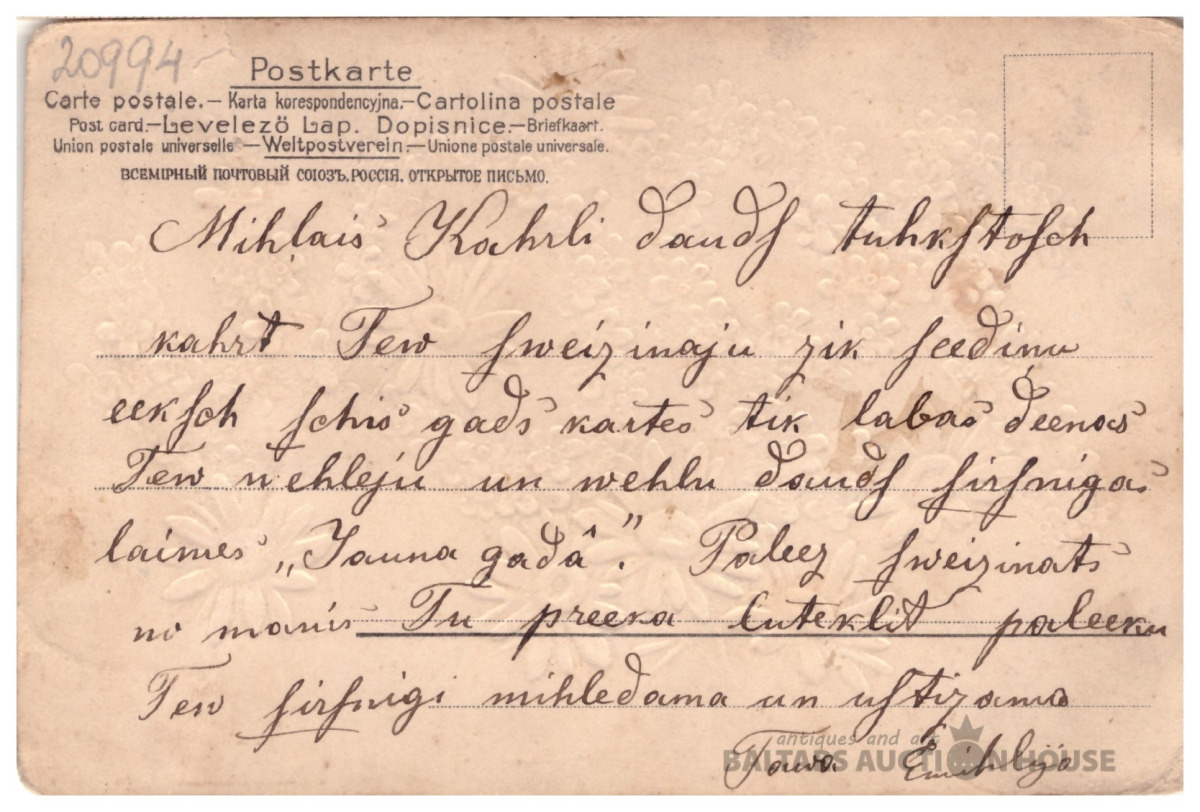 20994
Postkarte
Carte postale.— Karta korespondencyjna.—Cartolina postale
Post card.—Levelezö Lap. Dopisnice.—Briefkaart.
Union postale universelle —Weltpostverein.—Unione postale universale.
ВСЕМІРНЫЙ ПОЧТОВЫЙ СОЮЗЪ.РОССІЯ. ОТКРЫТОЕ ПИСЬМО.
Mihļais Kahrli daudſ tuhkſtoſch
kahrt Tew ſweizinaju zik ſeediņu
eekſch ſchis gads kartes tik labas deenas
Tew wehleju un wehlu daudſ ſirſnigas
laimes „Jauna gadâ". Paleez ſweizinats
no manis Tu preeka luteklit paleeku
Tew ſirſnigi mihledama un uſtizama
Tawa Emihlija
antiques and art
BALTARS AUCTION HOUSE